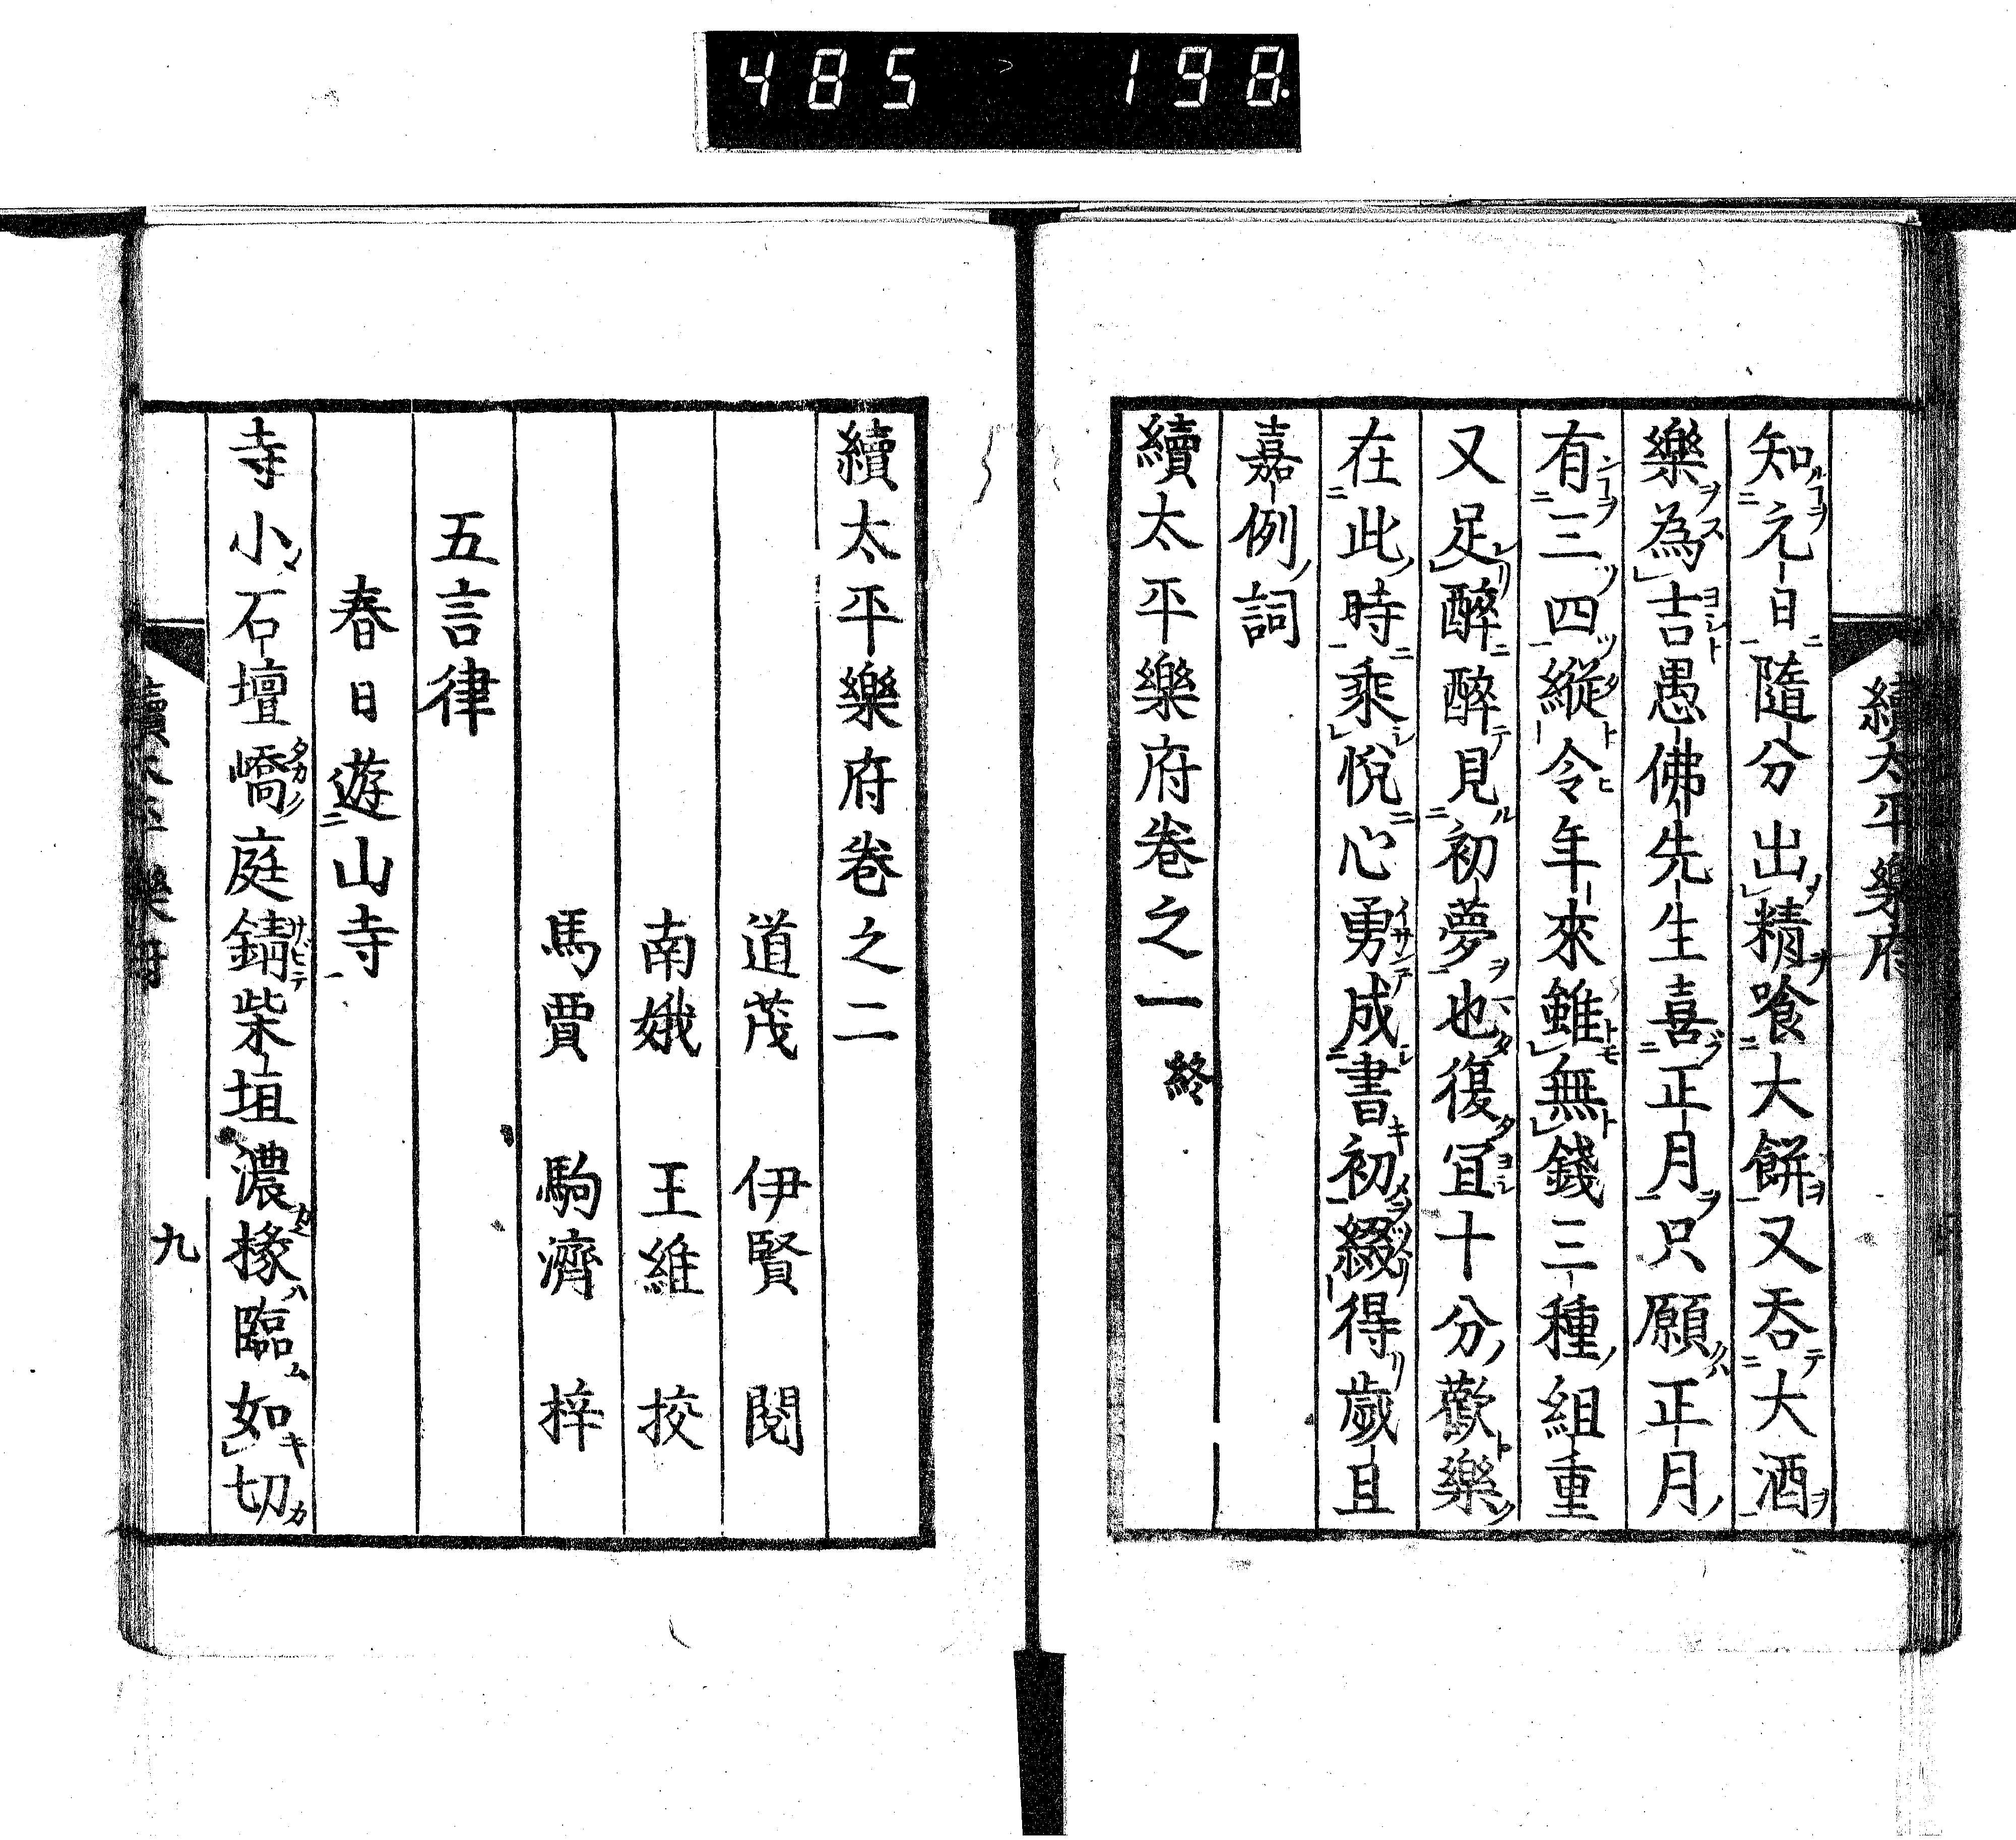 485 198
續太平樂府
知元日隨分出精飡大餅又吞大酒
樂為吉愚佛先生喜正月只願正月
有三四縱令年來雖無錢三種組重
又足醉醉見初夢也復宜十分歡樂
在此時乘悅心勇成書初綴得歲且
嘉例詞
續太平樂府卷之一 終
續太平樂府卷之二
道茂 伊賢 閱
南娥 王維 挍
馬賈 駒濟 梓
五言律
春日遊山寺
寺小石壇嶠庭錆柴垣濃椽臨如切
九